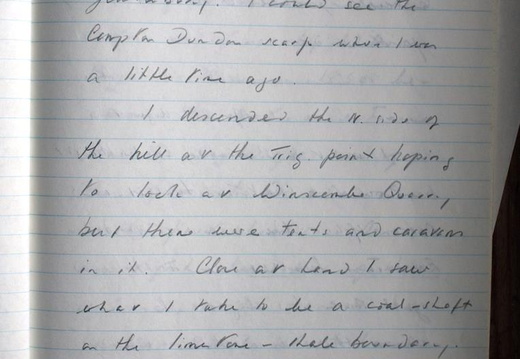 I could see the
Compton Dundon scarp where I was
a little time ago.
I descended the N. side of
the hill at the Trig point hoping
to look at Winscombe Quarry,
but there were tents and caravans
in it. Close at hand I saw
what I take to be a coal-shaft
on the limestone - shale boundary.